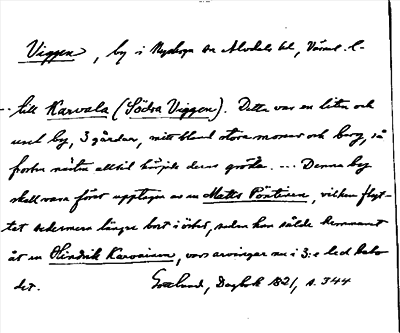 Viggen, by i Nyskoga sn Älvdals hd, Värml. l-
- till Karvala (Södra Viggen). Detta var en liten och
usel by, 3 gårdar, mitt bland stora morar och berg, så
frosten nästan alltid härjade deras gröda. ... Denna by
skall vara först upptagen av en Matts Pöntinen, vilken flyt-
tat sedermera längre bort i öster, sedan han sålde hemmanet
åt en Hindrik Karvainen, vars arvingar nu i 3:e led hava
det. Gottlund, Dagbok 1821, s. 344